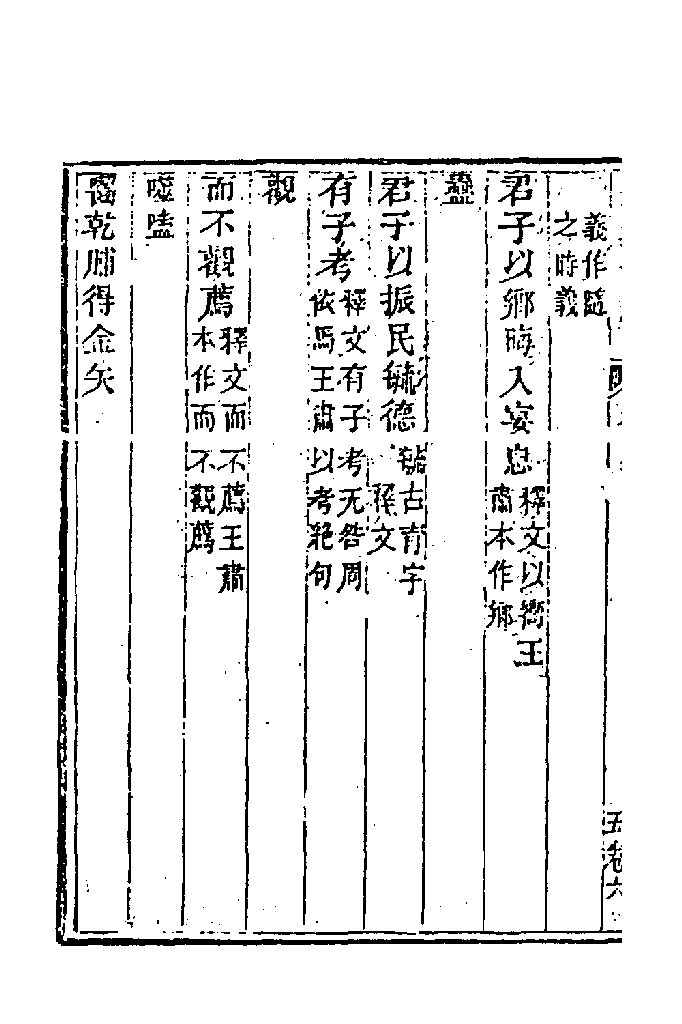 義作隨
之時義
君子以鄉晦入宴息釋文以嚮王
肅本作鄉
蠱
君子以振民毓德毓古育字
釋文
有子考釋文有子考无咎周
依馬王肅以考絕句
觀
而不觀薦釋文而不薦王肅
本作而不觀薦
噬嗑
噬乾胏得金矢